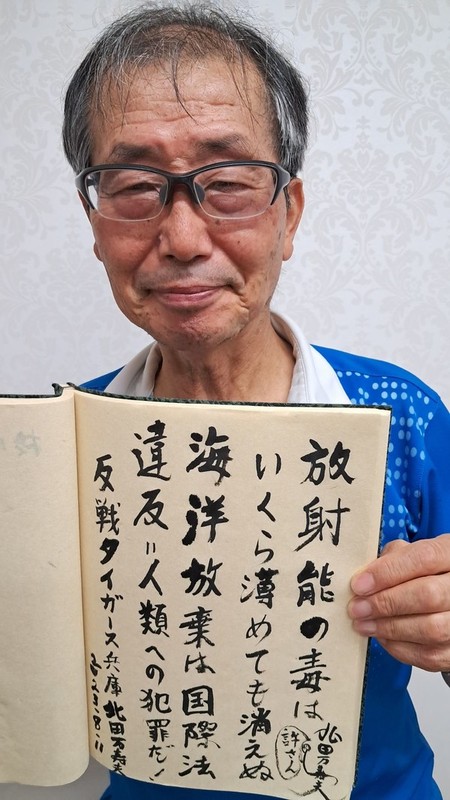 放射能の毒は
北田万寿夫
許さん
いくら薄めても消えぬ
海洋放棄は国際法
違反=人類への犯罪だ!
反戦タイガース兵庫 北田万寿夫 2023.8.11